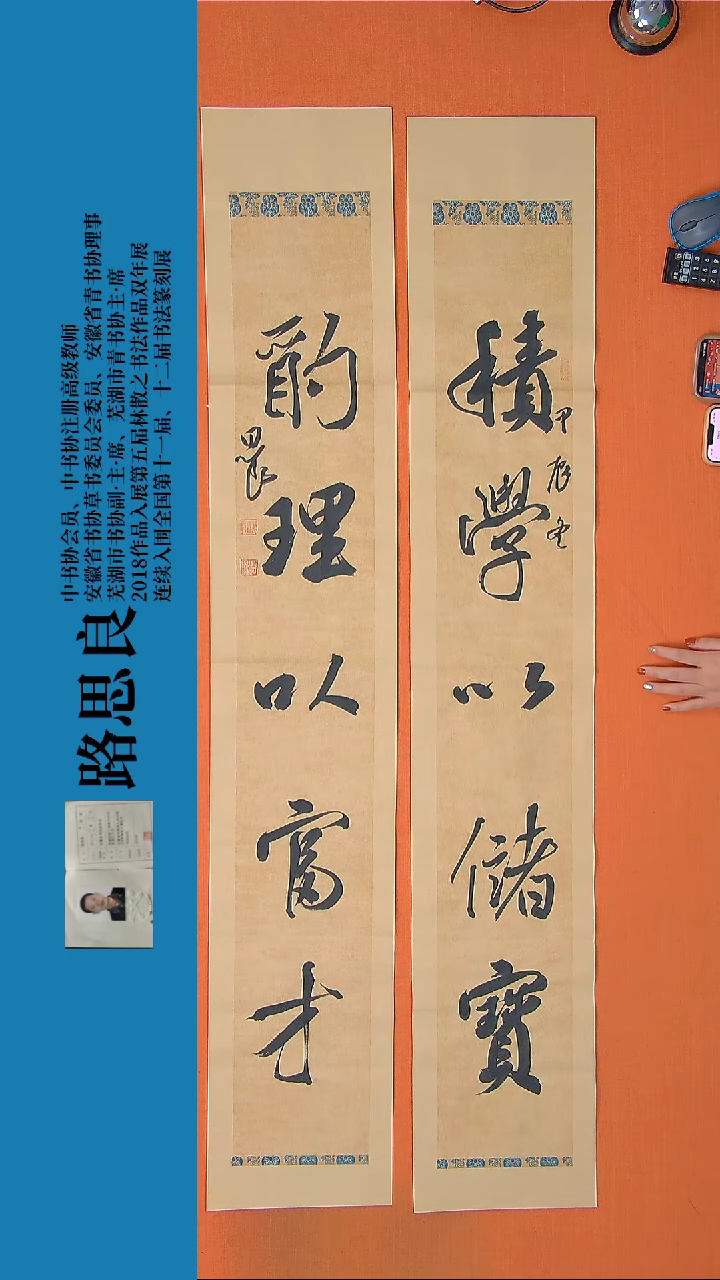 積學以儲寶
甲辰冬
酌理以富才
思良
路思良
中书协会员、中书协注册高级教师
安徽省书协草书委员会委员、安徽省青书协理事
芜湖市书协副·主·席、芜湖市青书协主·席
2018作品入展第五届林散之书法作品双年展
连续入围全国第十一届、十二届书法篆刻展